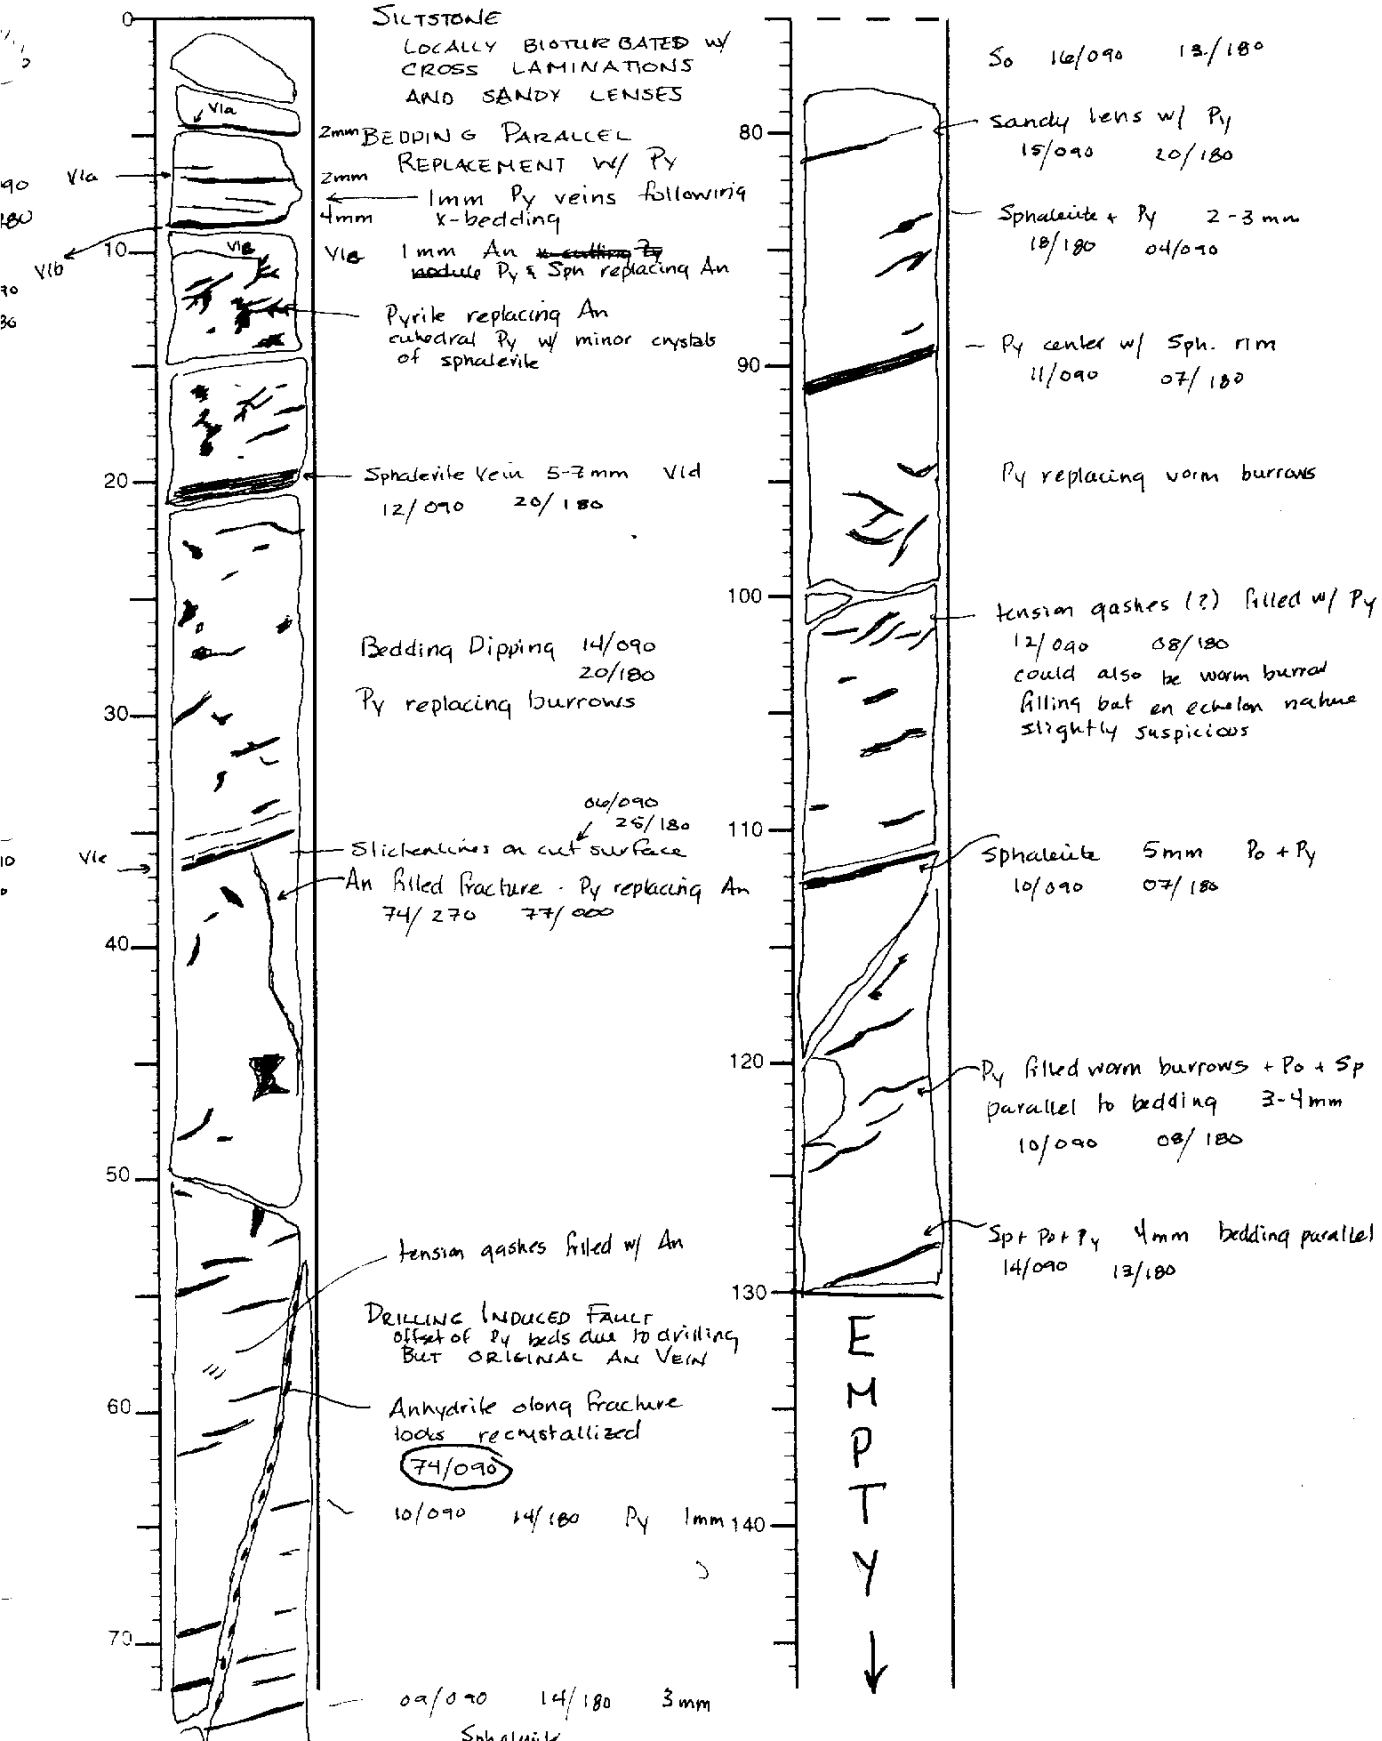 0
SILTSTONE
LOCALLY BIOTURBATED W/
CROSS LAMINATIONS
AND SANDY LENSES
V1a
2mm BEDDING PARALLEL
REPLACEMENT W/ Py
V1a
2mm
1mm Py veins following
x-bedding
4mm
V1b
10
V1c
V1c 1mm An x-cutting Py
nodule Py & Sph replacing An
Pyrite replacing An
euhedral Py w/ minor crystals
of sphalerite
20
Sphalerite Vein 5-7mm V1d
12/090 20/180
Bedding Dipping 14/090
20/180
Py replacing burrows
30
06/090
25/180
V1e
Slickenlines on cut surface
An filled fracture - Py replacing An
74/270 77/000
40
50
tension gashes filled w/ An
DRILLING INDUCED FAULT
offset of Py beds due to drilling
BUT ORIGINAL AN VEIN
60
Anhydrite along fracture
looks recrystallized
74/090
10/090 14/180 Py 1mm
70
09/090 14/180 3mm
Sphalerite
So 16/090 13/180
80
Sandy lens w/ Py
15/090 20/180
Sphalerite + Py 2-3mm
18/180 04/090
90
Py center w/ Sph. rim
11/090 07/180
Py replacing worm burrows
100
tension gashes (?) filled w/ Py
12/090 08/180
could also be worm burrow
filling but en echelon nature
slightly suspicious
110
Sphalerite 5mm Po + Py
10/090 07/180
120
Py filled worm burrows + Po + Sp
parallel to bedding 3-4mm
10/090 08/180
Sp + Po + Py 4mm bedding parallel
14/090 13/180
130
E
M
P
T
Y
140